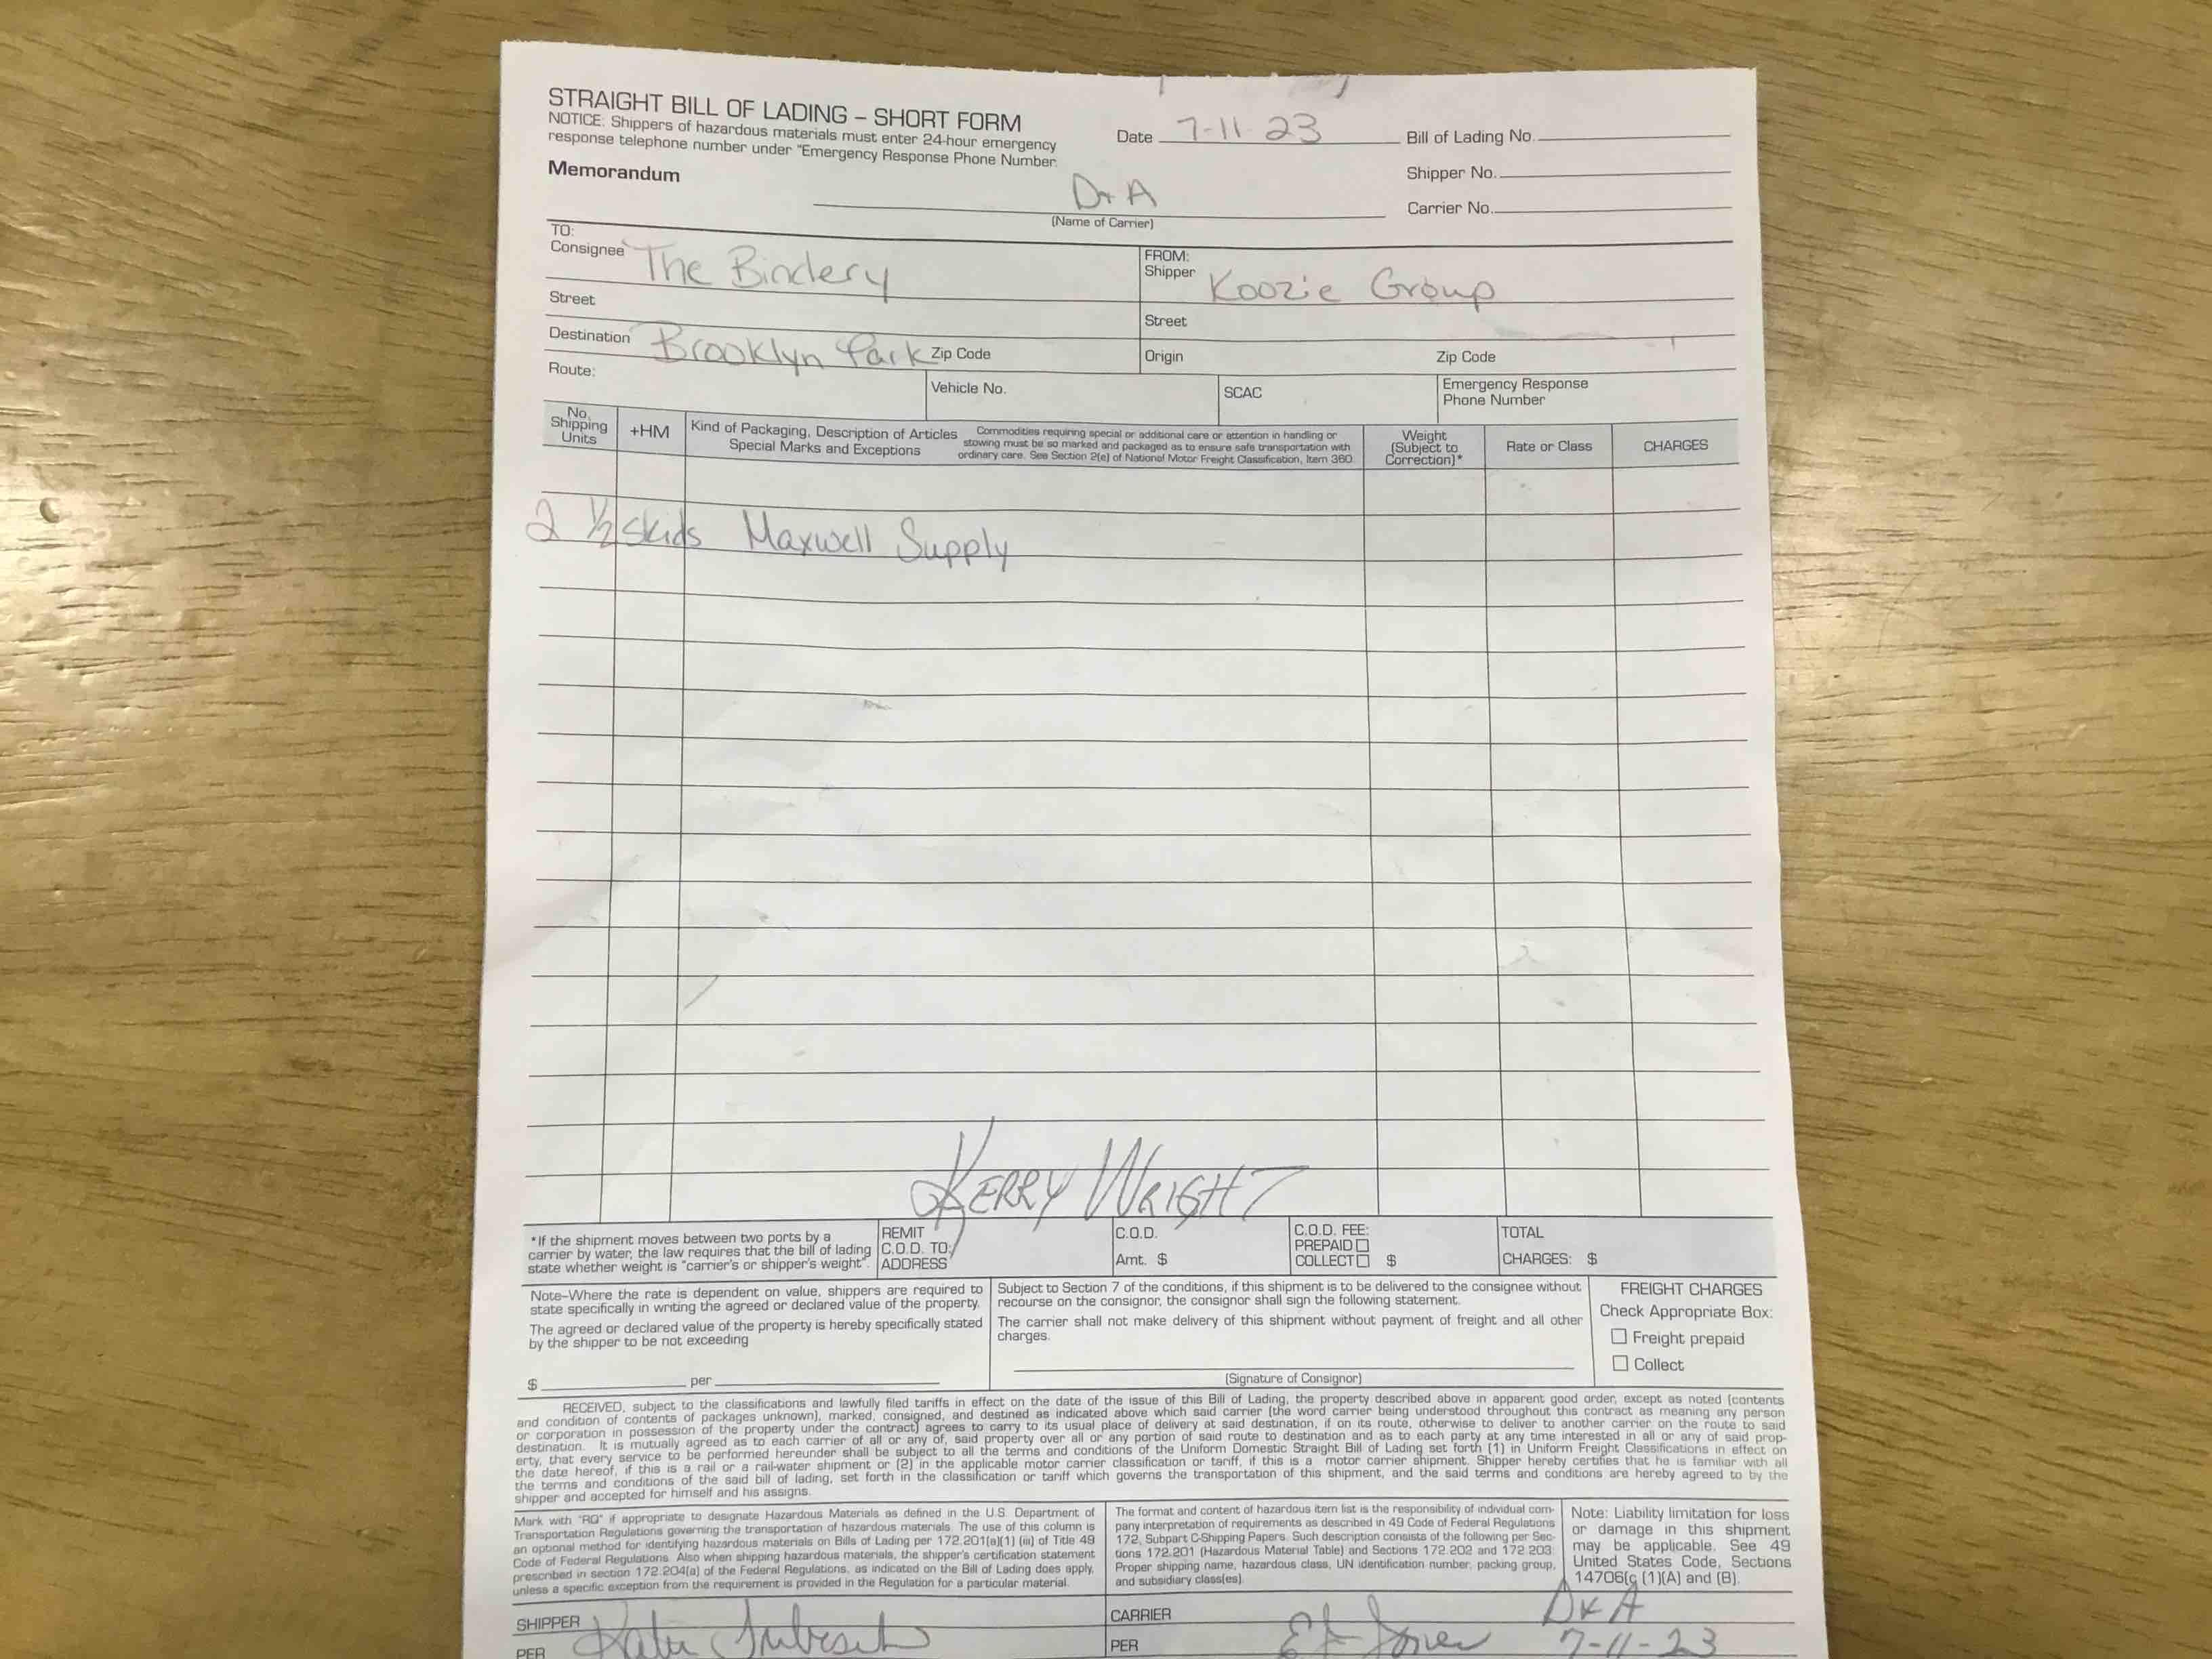 STRAIGHT BILL OF LADING – SHORT FORM
NOTICE: Shippers of hazardous materials must enter 24-hour emergency
response telephone number under "Emergency Response Phone Number.
Memorandum
Date 7-11-23
Bill of Lading No.
Shipper No.
Carrier No.
D+A
(Name of Carrier)
TO:
Consignee The Bindery
FROM:
Shipper Koozie Group
Street
Street
Destination Brooklyn Park Zip Code
Origin Zip Code
Route:
Vehicle No.
SCAC
Emergency Response
Phone Number
No.
Shipping
Units
+HM
Kind of Packaging, Description of Articles
Special Marks and Exceptions
Commodities requiring special or additional care or attention in handling or
stowing must be so marked and packaged as to ensure safe transportation with
ordinary care. See Section 2(e) of National Motor Freight Classification, Item 360.
Weight
(Subject to
Correction)*
Rate or Class
CHARGES
2 ½ skids Maxwell Supply
KERRY WRIGHT
*If the shipment moves between two ports by a
carrier by water, the law requires that the bill of lading
state whether weight is "carrier's or shipper's weight".
REMIT
C.O.D. TO:
ADDRESS
C.O.D.
Amt. $
C.O.D. FEE:
PREPAID
COLLECT $
TOTAL
CHARGES: $
Note–Where the rate is dependent on value, shippers are required to
state specifically in writing the agreed or declared value of the property.
The agreed or declared value of the property is hereby specifically stated
by the shipper to be not exceeding
$ per
Subject to Section 7 of the conditions, if this shipment is to be delivered to the consignee without
recourse on the consignor, the consignor shall sign the following statement.
The carrier shall not make delivery of this shipment without payment of freight and all other
charges.
(Signature of Consignor)
FREIGHT CHARGES
Check Appropriate Box:
Freight prepaid
Collect
RECEIVED, subject to the classifications and lawfully filed tariffs in effect on the date of the issue of this Bill of Lading, the property described above in apparent good order, except as noted (contents
and condition of contents of packages unknown), marked, consigned, and destined as indicated above which said carrier (the word carrier being understood throughout this contract as meaning any person
or corporation in possession of the property under the contract) agrees to carry to its usual place of delivery at said destination, if on its route, otherwise to deliver to another carrier on the route to said
destination. It is mutually agreed as to each carrier of all or any of, said property over all or any portion of said route to destination and as to each party at any time interested in all or any of said prop-
erty, that every service to be performed hereunder shall be subject to all the terms and conditions of the Uniform Domestic Straight Bill of Lading set forth (1) in Uniform Freight Classifications in effect on
the date hereof, if this is a rail or a rail-water shipment or (2) in the applicable motor carrier classification or tariff, if this is a motor carrier shipment. Shipper hereby certifies that he is familiar with all
the terms and conditions of the said bill of lading, set forth in the classification or tariff which governs the transportation of this shipment, and the said terms and conditions are hereby agreed to by the
shipper and accepted for himself and his assigns.
Mark with "RQ" if appropriate to designate Hazardous Materials as defined in the U.S. Department of
Transportation Regulations governing the transportation of hazardous materials. The use of this column is
an optional method for identifying hazardous materials on Bills of Lading per 172.201(a)(1) (iii) of Title 49
Code of Federal Regulations. Also when shipping hazardous materials, the shipper's certification statement
prescribed in section 172.204(a) of the Federal Regulations, as indicated on the Bill of Lading does apply,
unless a specific exception from the requirement is provided in the Regulation for a particular material.
The format and content of hazardous item list is the responsibility of individual com-
pany interpretation of requirements as described in 49 Code of Federal Regulations
172, Subpart C-Shipping Papers. Such description consists of the following per Sec-
tions 172.201 (Hazardous Material Table) and Sections 172.202 and 172.203:
Proper shipping name, hazardous class, UN identification number, packing group,
and subsidiary class(es).
Note: Liability limitation for loss
or damage in this shipment
may be applicable. See 49
United States Code, Sections
14706(c (1)(A) and (B).
SHIPPER
PER
CARRIER D+A
PER Jones 7-11-23